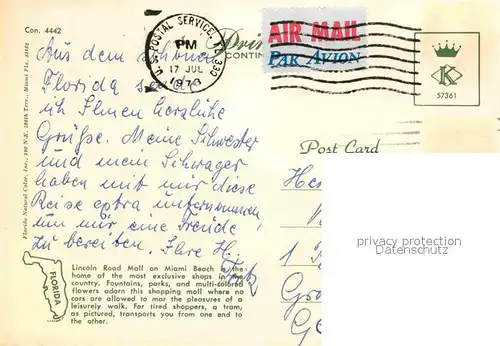 Con. 4442
U.S. POSTAL SERVICE, FL 330
PM
17 JUL
1970
AIR MAIL
PAR AVION
K
57361
CONTIN
Post Card
Aus dem schönen
Florida
ich Ihnen herzliche
Grüße. Meine Schwester
und mein Schwager
haben mit mir diese
Reise extra unternommen,
um mir eine Freude
zu bereiten. Ihre H.
Florida Natural Color, Inc., 190 N.E. 186th Terr., Miami Fla. 33162
Lincoln Road Mall on Miami Beach is the
home of the most exclusive shops in the
country. Fountains, parks, and multi-colored
flowers adorn this shopping mall where no
cars are allowed to mar the pleasures of a
leisurely walk. For tired shoppers, a tram,
as pictured, transports you from one end to
the other.
FLORIDA
privacy protection
Datenschutz